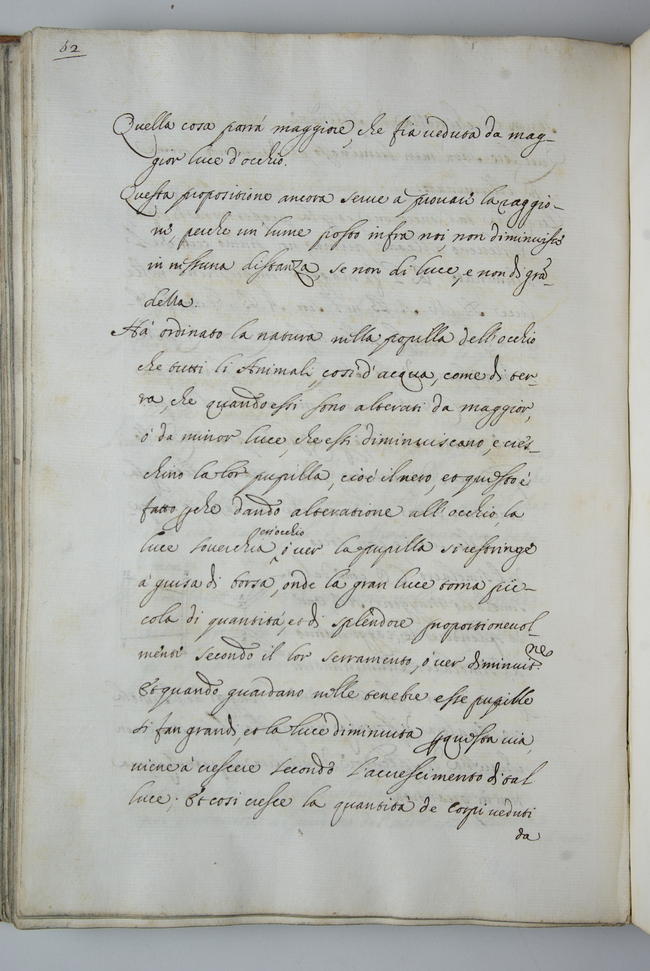 62
Quella cosa parrà maggiore, che fia veduta da mag-
gior luce d'occhio.
Questa propositione ancora serve à provare la raggio-
ne, perche un lume posto infra noi, non diminuisce
in nessuna distanza, se non di luce, e non di gra-
della.
Hà ordinato la natura nella popilla dell'occhio
che tutti li Animali, cosi d'acqua, come di ter-
ra, che quando essi sono alterati da maggior,
ò da minor luce, che essi diminuiscano, e cres-
chino la lor pupilla, cioè il nero, et questo è
fatto, che dando alteratione all'occhio, la
luce soverchia, ò ver la pupilla si restringe
à guisa di borsa, onde la gran luce torna pic-
cola di quantità, et di splendore proportionevol-
mente secondo il lor serramento, ò ver diminuit.ne
Et quando guardano nelle tenebre esse pupille
si fan grandi, et la luce diminuita questa via,
viene à crescere secondo l'accrescimento di tal
luce. Et cosi cresce la quantità de corpi veduti
da